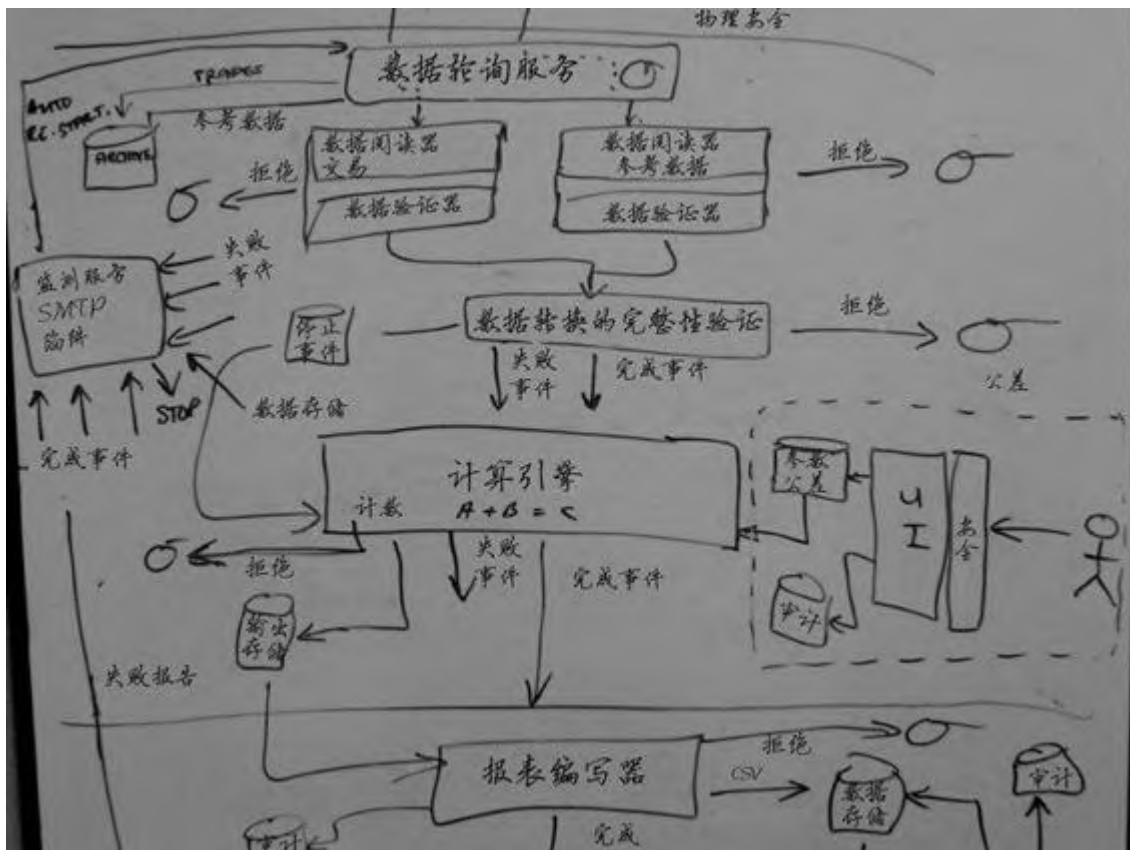 物理安全
数据轮询服务
TRADES
AUTO
RE.START.
参考数据
ARCHIVE
数据阅读器
交易
数据验证器
数据阅读器
参考数据
数据验证器
拒绝
拒绝
失败
事件
监测服务
SMTP
陷阱
停止
事件
数据转换的完整性验证
拒绝
公差
失败
事件
完成事件
STOP
数据存储
完成事件
计算引擎
计数
A+B=C
参数
公差
UI
安全
审计
拒绝
失败
事件
完成事件
输出
存储
失败报告
报表编写器
拒绝
CSV
数据
存储
审计
审计
完成